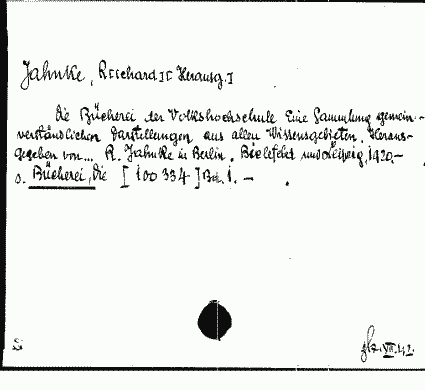 Jahnke, R[ichard] [Herausg.]
Die Bücherei der Volkshochschule Eine Sammlung gemein-
verständlicher Darstellungen aus allen Wissensgebieten. Heraus-
gegeben von... R. Jahnke in Berlin. Bielefeld und Leipzig, 1920,-
s. Bücherei, Die [100 334] Bd. 1. -
VII.42.